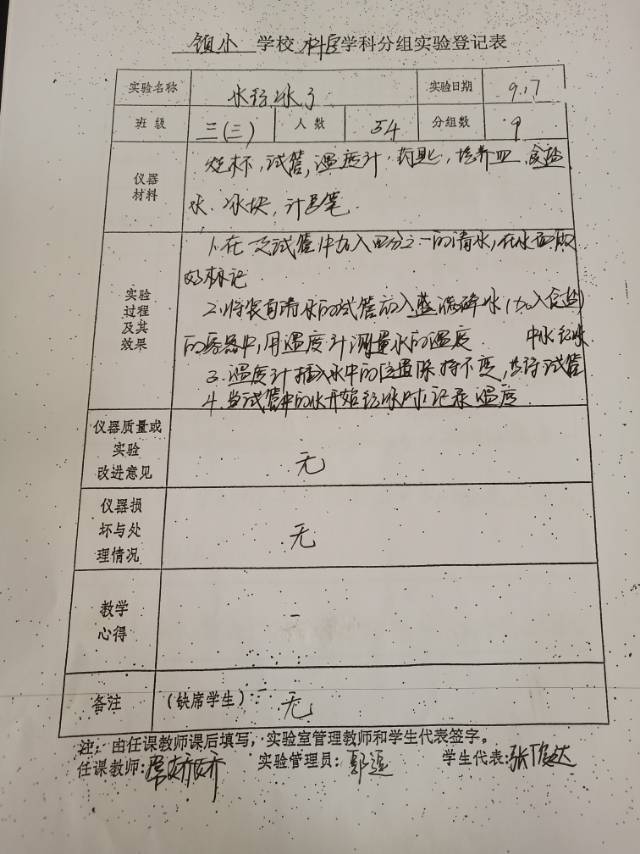 镇小 学校 科学 学科分组实验登记表
实验名称 水结冰了 实验日期 9.17
班级 三(三) 人数 54 分组数 9
仪器材料 烧杯,试管,温度计,药匙,培养皿,食盐
水、冰块,记号笔.
实验过程及其效果 1.在 试管中加入四分之一的清水,在水面做
好标记
2.将装有清水的试管放入盛满碎冰(加入食盐)
的容器中,用温度计测量水的温度
3.温度计插入水中的位置保持不变,共 试管
中水结冰
4.当试管中的水开始结冰时,记录温度
仪器质量或实验改进意见 无
仪器损坏与处理情况 无
教学心得
备注 (缺席学生) 无
注:由任课教师课后填写,实验室管理教师和学生代表签字。
任课教师: 实验管理员: 学生代表:张